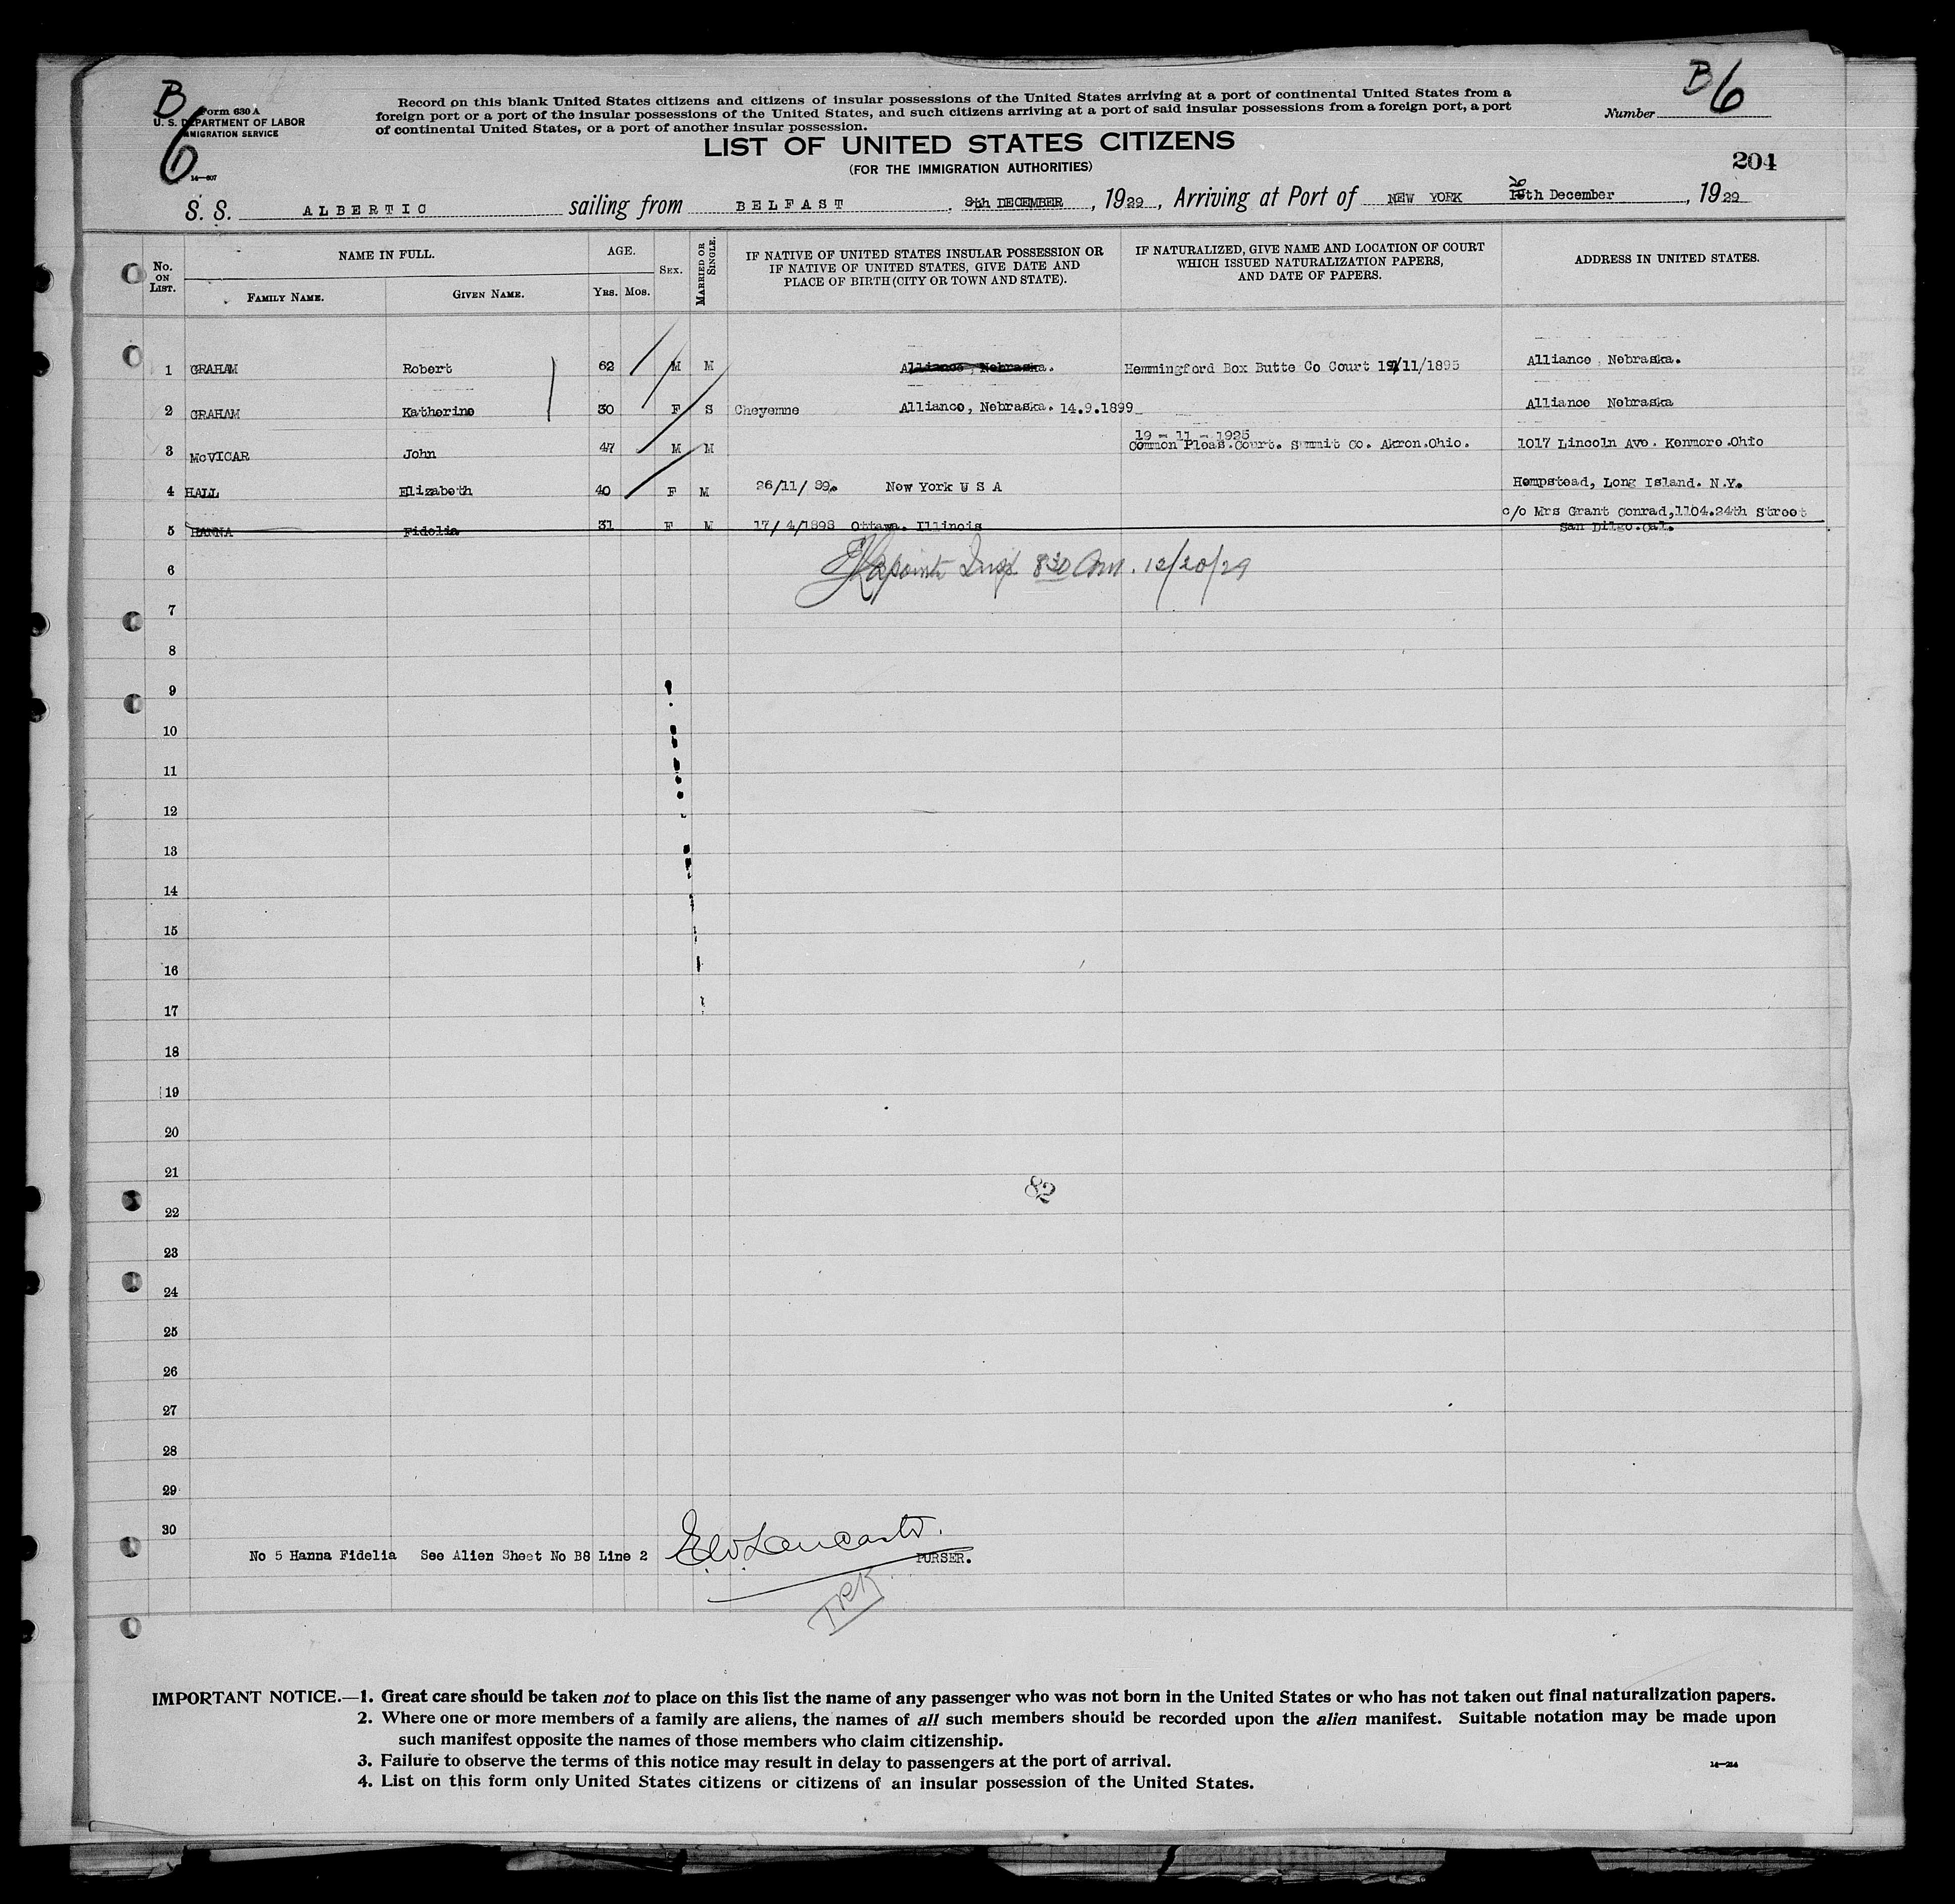 B6
Form 630 A
U. S. DEPARTMENT OF LABOR
IMMIGRATION SERVICE
14—607
Record on this blank United States citizens and citizens of insular possessions of the United States arriving at a port of continental United States from a
foreign port or a port of the insular possessions of the United States, and such citizens arriving at a port of said insular possessions from a foreign port, a port
of continental United States, or a port of another insular possession.
Number B6
LIST OF UNITED STATES CITIZENS
(FOR THE IMMIGRATION AUTHORITIES)
204
S. S. ALBERTIC sailing from BELFAST, 9th DECEMBER, 1929, Arriving at Port of NEW YORK th December, 1929
No. ON LIST. NAME IN FULL. AGE. SEX. MARRIED OR SINGLE. IF NATIVE OF UNITED STATES INSULAR POSSESSION OR IF NATIVE OF UNITED STATES, GIVE DATE AND PLACE OF BIRTH (CITY OR TOWN AND STATE). IF NATURALIZED, GIVE NAME AND LOCATION OF COURT WHICH ISSUED NATURALIZATION PAPERS, AND DATE OF PAPERS. ADDRESS IN UNITED STATES.
FAMILY NAME. GIVEN NAME. YRS. MOS.
1 GRAHAM Robert 62 M M Alliance, Nebraska. Hemmingford Box Butte Co Court /11/1895 Alliance, Nebraska.
2 GRAHAM Katherine 30 F S Cheyenne Alliance, Nebraska. 14.9.1899 Alliance Nebraska
19 - 11 - 1925
3 McVICAR John 47 M M Common Pleas.Court. Summit Co. Akron.Ohio. 1017 Lincoln Ave. Kenmore.Ohio
4 HALL Elizabeth 40 F M 26/11/ 89. New York U S A Hempstead, Long Island. N.Y.
c/o Mrs Grant Conrad,1104.24th Street
5 HANNA Fidelia 31 F M 17/4/1898 Ottawa. Illinois San Diego.Cal.
6 Insp 830 Am. 12/20/29
7
8
9
10
11
12
13
14
15
16
17
18
19
20
21
82
22
23
24
25
26
27
28
29
30
No 5 Hanna Fidelia See Alien Sheet No B8 Line 2 PURSER.
IMPORTANT NOTICE.—1. Great care should be taken not to place on this list the name of any passenger who was not born in the United States or who has not taken out final naturalization papers.
2. Where one or more members of a family are aliens, the names of all such members should be recorded upon the alien manifest. Suitable notation may be made upon
such manifest opposite the names of those members who claim citizenship.
3. Failure to observe the terms of this notice may result in delay to passengers at the port of arrival.
4. List on this form only United States citizens or citizens of an insular possession of the United States.
14—214